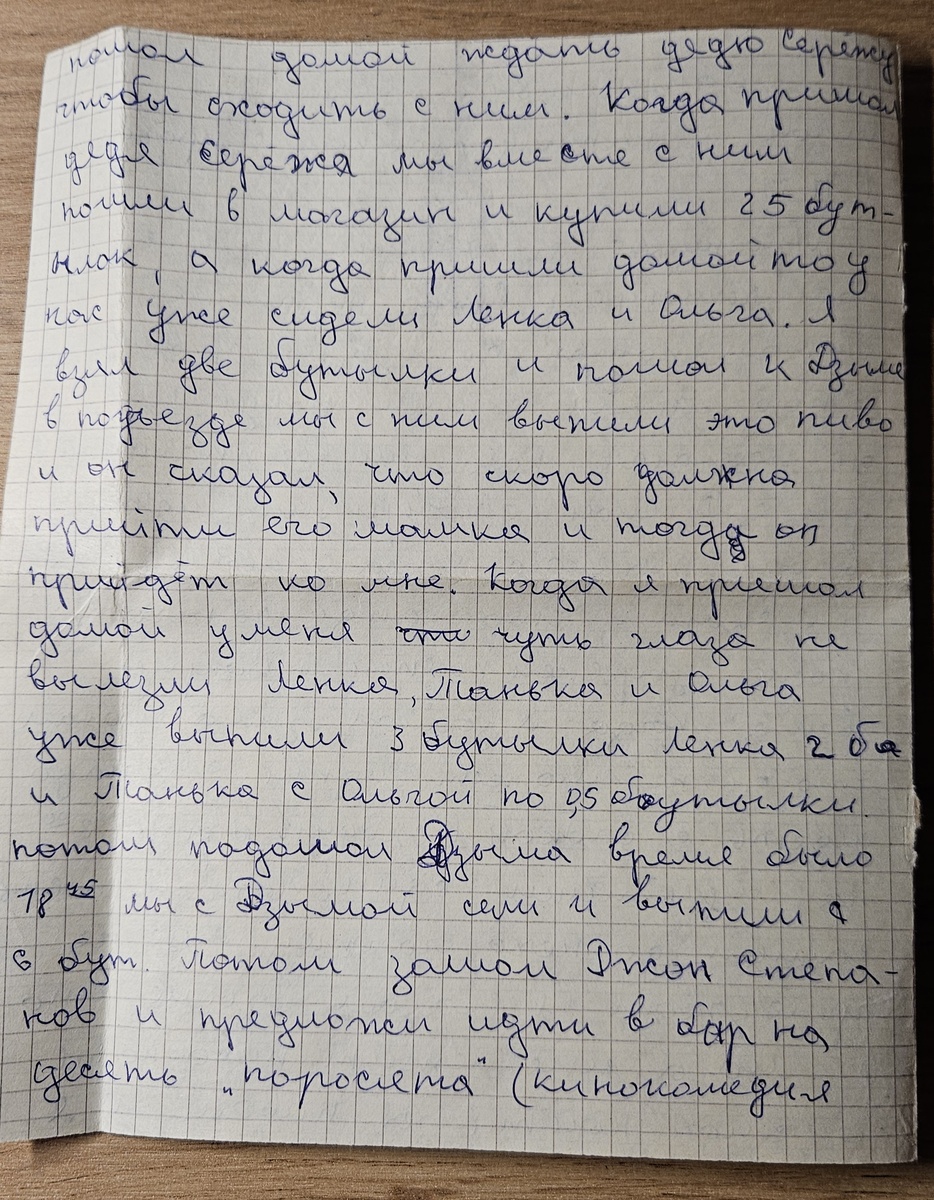 пошол домой ждать дядю Серёжу
чтобы сходить с ним. Когда пришол
дядя Серёжа мы вместе с ним
пошли в магазин и купили 25 бут-
ылок, а когда пришли домой то у
нас уже сидели Ленка и Ольга. Я
взял две бутылки и пошол к Дзыме
в подъезде мы с ним выпили это пиво
и он сказал, что скоро должна
прийти его мамка и тогда он
прийдёт ко мне. Когда я пришол
домой у меня чуть глаза не
вылезли Ленка, Танька и Ольга
уже выпили 3 бутылки Ленка 2 бу
и Танька с Ольгой по 0,5 бутылки.
потом подошол Дзыма время было
18 45 мы с Дзымой сели и выпили
6 бут. Потом зашол Джон Степа-
нов и предложи идти в бар на
десять „поросята" (кинокомедия